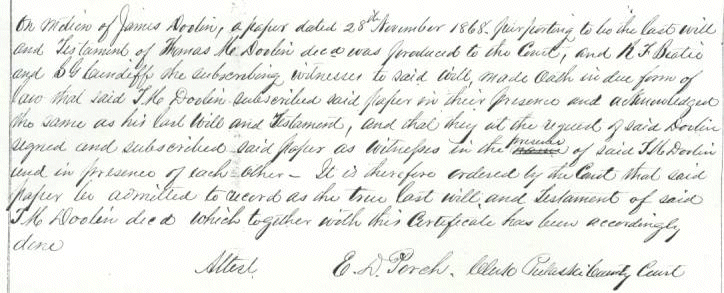 On motion of James Doolin, a paper dated 28th November 1868. purporting to be the last will
and Testament of Thomas M. Doolin decd was produced to the Court, and R F Beatie
and E G Cundiff the subscribing witnesses to said will, made oath in due form of
law that said T. M. Doolin subscribed said paper in their presence and acknowledged
the same as his last Will and Testament, and that they at the request of said Doolin
signed and subscribed said paper as witnesses in the presence of said T M Doolin
and in presence of each other - It is therefore ordered by the Court that said
paper be admitted to record as the true last will and Testament of said
T M Doolin decd which together with this Certificate has been accordingly
done
Attest. E. D. Porch. Clerk Pulaski County Court